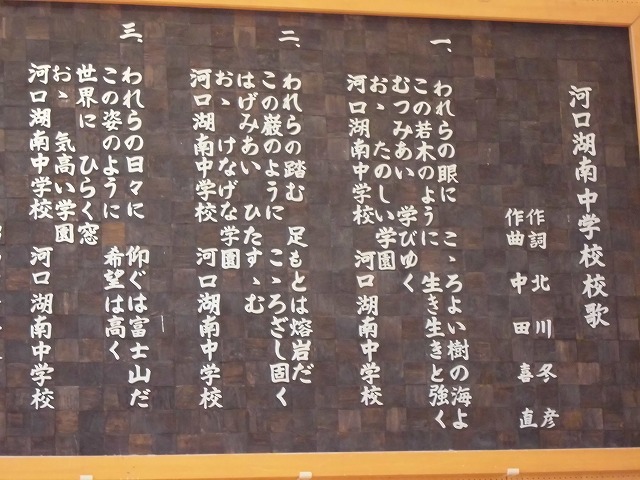 河口湖南中学校校歌
作詞 北川冬彦
作曲 中田喜直
一、
われらの眼に こゝろよい樹の海よ
この若木のように 生き生きと強く
むつみあい 学びゆく
おゝ たのしい学園
河口湖南中学校 河口湖南中学校
二、
われらの踏む 足もとは熔岩だ
この巌のように こゝろざし固く
はげみあい ひたすゝむ
おゝ けなげな学園
河口湖南中学校 河口湖南中学校
三、
われらの日々に 仰ぐは富士山だ
この姿のように 希望は高く
世界に ひらく窓
おゝ 気高い学園
河口湖南中学校 河口湖南中学校